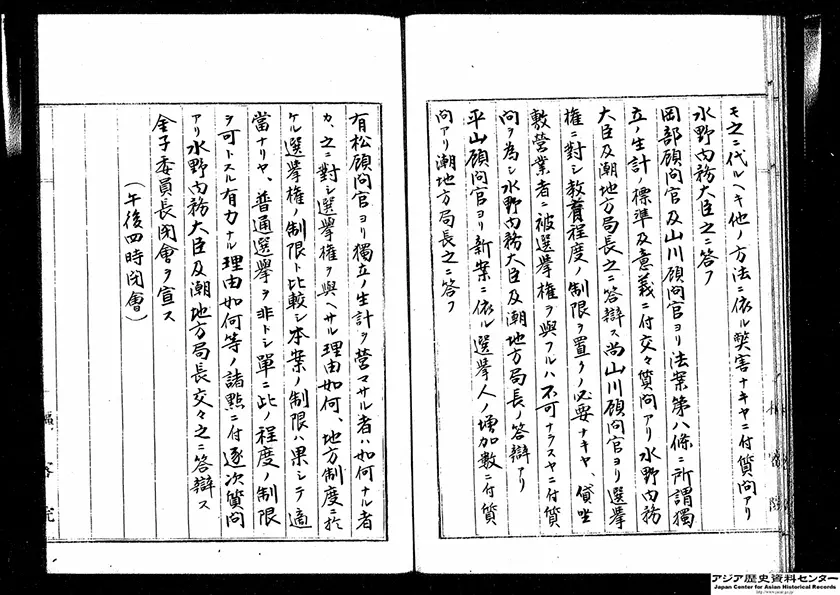 モ之ニ代ルヘキ他ノ方法ニ依ル弊害ナキヤニ付質問アリ
水野内務大臣之ニ答フ
岡部顧問官及山川顧問官ヨリ法案第八條ニ所謂獨
立ノ生計ノ標準及意義ニ付交々質問アリ水野内務
大臣及潮地方局長之ニ答辯ス尚山川顧問官ヨリ選擧
權ニ對シ教育程度ノ制限ヲ置クノ必要ナキヤ、貸座
敷營業者ニ被選擧權ヲ與フルハ不可ナラスヤニ付質
問ヲ為シ水野内務大臣及潮地方局長ノ答辯アリ
平山顧問官ヨリ新案ニ依ル選擧人ノ増加數ニ付質
問アリ潮地方局長之ニ答フ
有松顧問官ヨリ獨立ノ生計ヲ營マサル者ハ如何ナル者
カ、之ニ對シ選擧權ヲ與ヘサル理由如何、地方制度ニ於
ケル選擧權ノ制限ト比較シ本案ノ制限ハ果シテ適
當ナリヤ、普通選擧ヲ非トシ單ニ此ノ程度ノ制限
ヲ可トスル有力ナル理由如何等ノ諸點ニ付逐次質問
アリ水野内務大臣及潮地方局長交々之ニ答辯ス
金子委員長閉會ヲ宣ス
(午後四時閉會)
樞密院
アジア歴史資料センター
Japan Center for Asian Historical Records
http://www.jacar.go.jp/